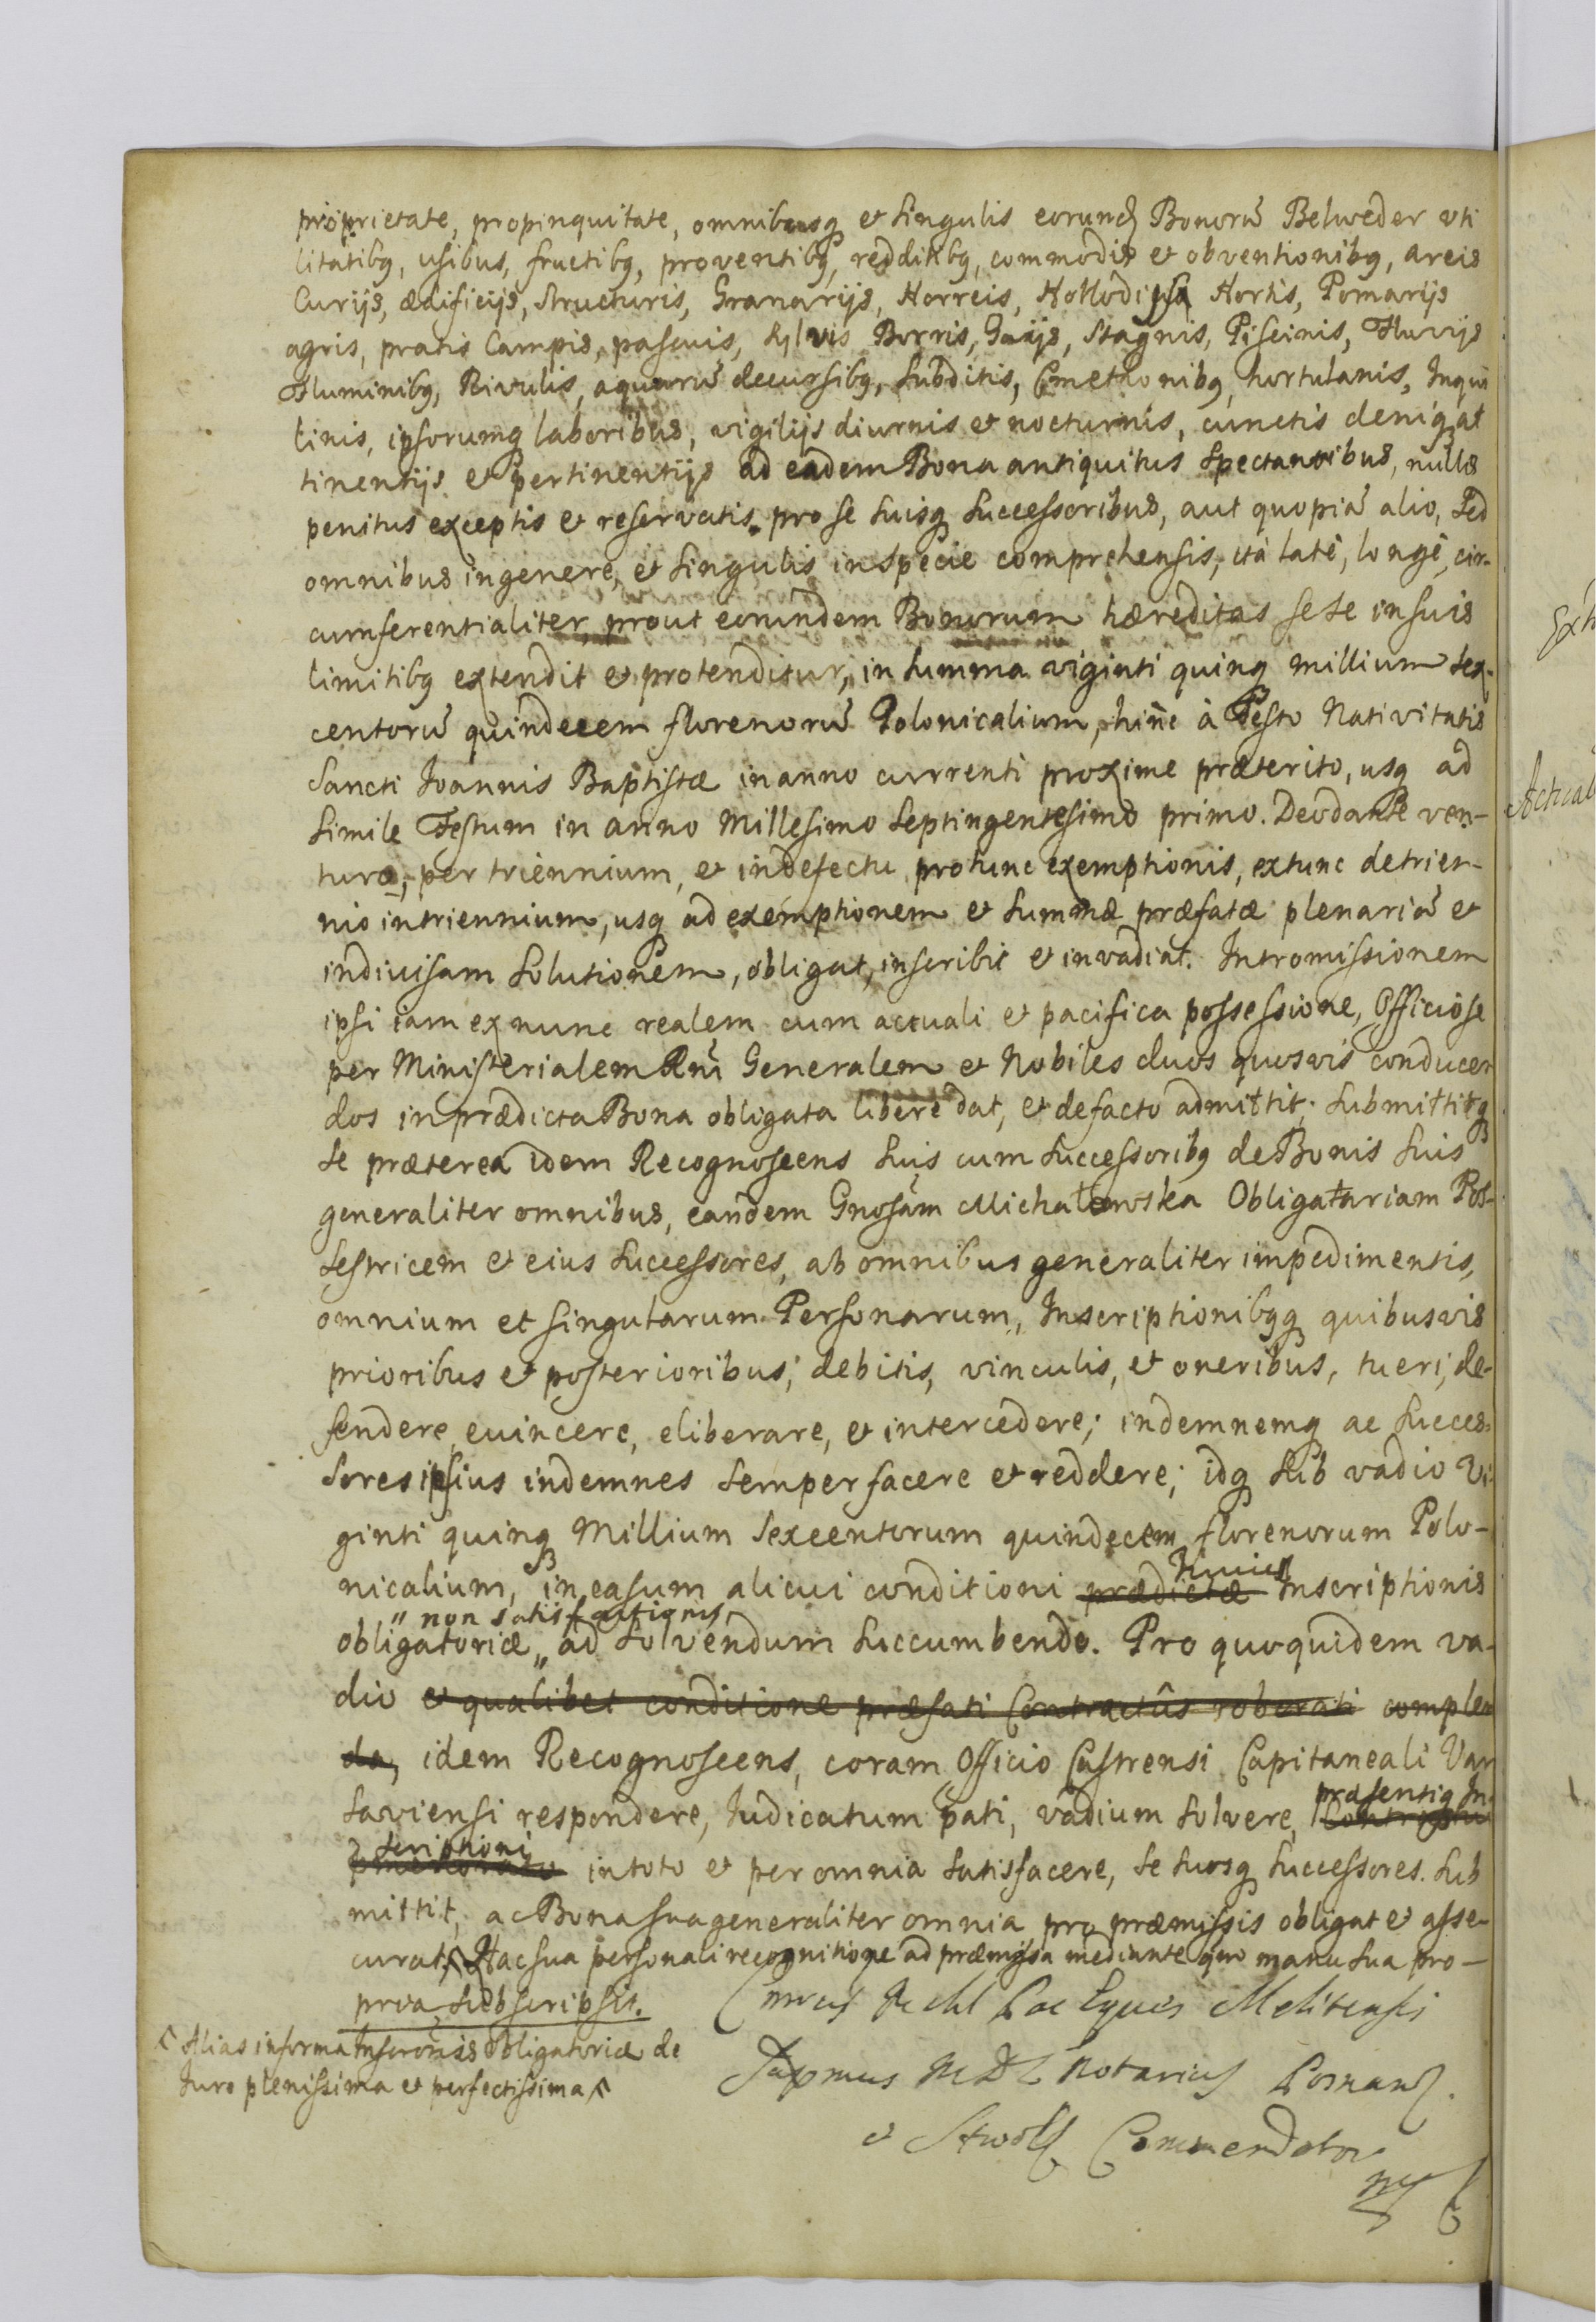 proprietate, propinquitate, omnibusq et singulis eorund Bonorū Belweder vti
litatibq, usibus, fructibq, proventibq, redditibq, commodis et obventionibq, areis
Curijs, ædificijs, structuris, Granarijs, Horreis, Hortis, Pomarijs
agris, pratis Campis, pascuis, sylvis Borris, Gaijs, Stagnis, Piscinis, Fluvijs
Fluminibq, Rivulis, aquarū decursibq, subditis, Cmethonibq, hortulanis, Inqui
linis, ipsorumq laboribus, vigilijs diurnis et nocturnis, cunctis deniq at
tinentijs et pertinentijs ad eadem Bona antiquitus spectantibus, nullis
penitus exceptis et reservatis pro se suisq successoribus, aut quopiā alio, sed
omnibus in genere, et singulis in specie comprehensis, ità latè, longè, cir-
cumferentialiter, prout eorundem Bonorum hæreditas sese in suis
limitibq extendit et protenditur, in summa viginti quinq millium sex-
centorū quindecem florenorū Polonicalium, hinc à Festo Nativitatis
Sancti Joannis Baptistæ in anno currenti proxime præterito, usq ad
simile Festum in anno Millesimo Septingentesimo primo. Deo dante ven-
turo, per triennium, et in defectu pro tunc exemptionis, ex tunc de trien-
nio in triennium, usq ad exemptionem et summæ præfatæ plenariā et
indivisam solutionem, obligat, inscribit et invadiat. Intromissionem
ipsi iam ex nunc realem cum actuali et pacifica possessione, Officiose
per Ministerialem Rni Generalem et Nobiles duos quosvis conducen
dos in prædicta Bona obligata liberè dat, et de facto admittit; submittitq
se præterea idem Recognoscens suis cum successoribq de Bonis suis
generaliter omnibus, eandem Gnosam Michałowska Obligatariam Pos-
sestricem et eius successores, ab omnibus generaliter impedimentis,
omnium et singularum Personarum, Inscriptionibqq quibusvis
prioribus et posterioribus; debitis, vinculis, et oneribus, tueri, de-
fendere, evincere, eliberare, et intercedere; indemnemq ac succes-
sores ipsius indemnes semper facere et reddere; idq sub vadio Vi
ginti quinq Millium sexcentorum quindecem florenorum Polo-
nicalium, in casum alicui conditioni prædictæ Huius Inscriptionis
obligatoriæ „ non satisfactionis „ ad solvendum succumbendo. Pro quo quidem va-
dio et qualibet conditione præfati Contractûs roborati complen
da, idem Recognoscens, coram Officio Castrensi Capitaneali Var
saviensi respondere, Iudicatum pati, vadium solvere, præsentiq In-
scriptioni in toto et per omnia satisfacere, se suosq successores sub
mittit, ac Bona sua generaliter omnia pro præmissis obligat et asse-
curat. Hac sua personali recognitione ad præmissa mediante quo manu sua pro-
pria subscripsit.
Alias in forma Inscronis Obligatoriæ de
Iure plenissima et perfectissima
Pac Eques Melitensis
Supmus M D L Notarius Posnans.
et Stwoł Commendator
mp